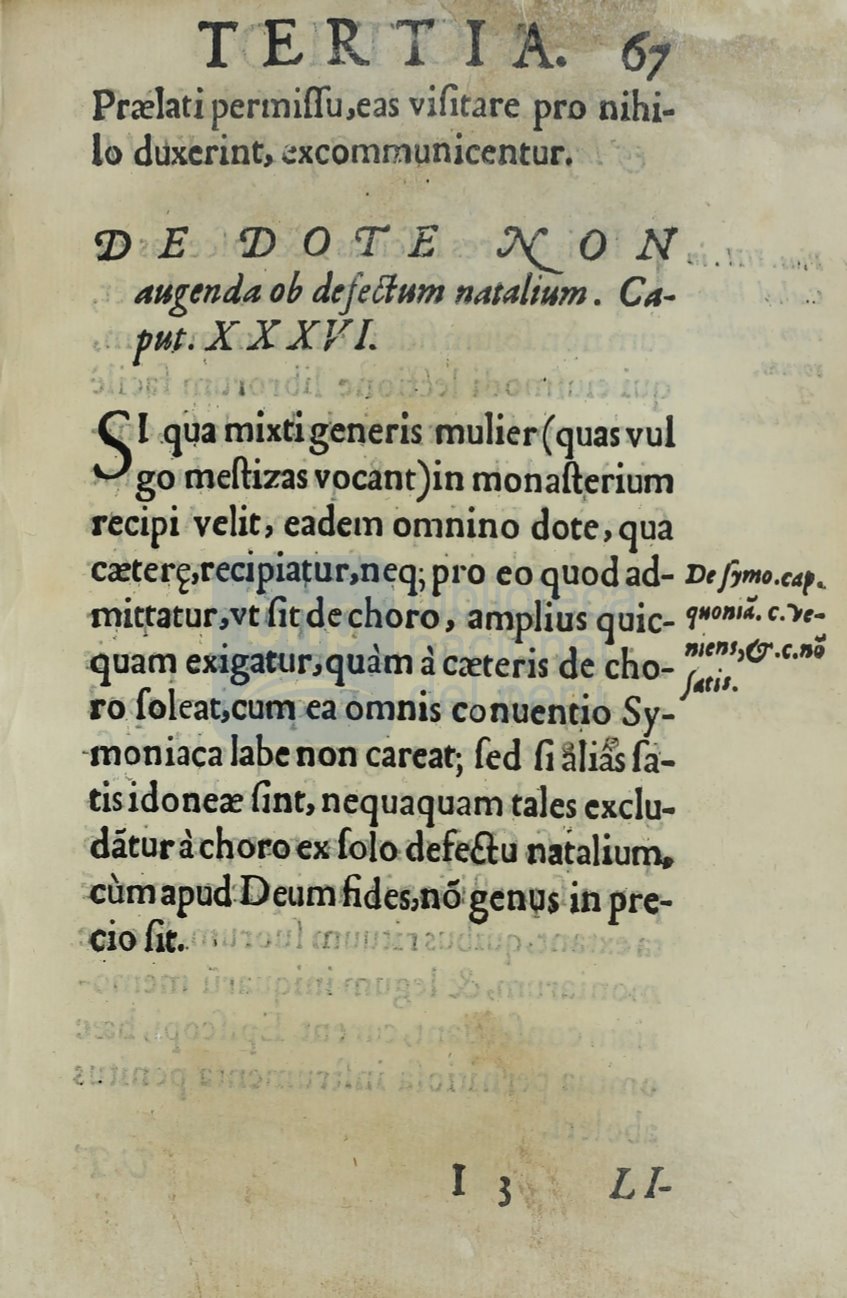 TERTIA. 67
Prælati permiſſu,eas viſitare pro nihi-
lo duxerint, excommunicentur.
DE DOTE NON
augenda ob defectum natalium. Ca-
put. XXXVI.
SI qua mixti generis mulier (quas vul
go meſtizas vocant) in monaſterium
recipi velit, eadem omnino dote, qua
cæterę, recipiatur, neq; pro eo quod ad-
mittatur, vt ſit de choro, amplius quic-
quam exigatur, quàm à cæteris de cho-
ro ſoleat, cum ea omnis conuentio Sy-
moniaca labe non careat; ſed ſi aliâs ſa-
tis idoneæ ſint, nequaquam tales exclu-
dãtur à choro ex ſolo defectu natalium,
cùm apud Deum fides, nõ genus in pre-
cio ſit.
De ſymo. cap.
quoniã. c. ve-
niens, &. c. nõ
ſatis.
I 3 LI-